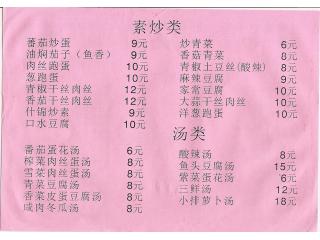 素炒类
番茄炒蛋 9元
油焖茄子（鱼香） 9元
肉丝跑蛋 10元
葱跑蛋 10元
青椒干丝肉丝 12元
香茄干丝肉丝 12元
什锦炒素 9元
口水豆腐 10元
炒青菜 6元
香菇青菜 8元
青椒土豆丝(酸辣) 8元
麻辣豆腐 9元
家常豆腐 10元
大蒜干丝肉丝 10元
洋葱跑蛋 10元
汤类
番茄蛋花汤 6元
榨菜肉丝蛋汤 8元
雪菜肉丝蛋汤 8元
青菜豆腐汤 8元
香菜皮蛋豆腐汤 8元
咸肉冬瓜汤 8元
酸辣汤 8元
鱼头豆腐汤 15元
紫菜蛋花汤 6元
三鲜汤 12元
小排萝卜汤 18元